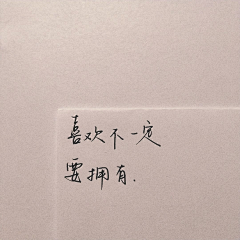 喜欢不一定
要拥有.